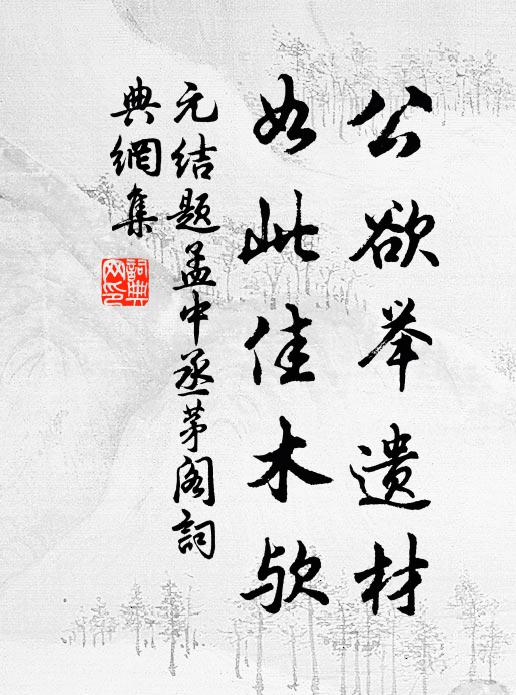 公欲举遗材
如此佳木欤
元结题孟中丞茅阁詞
典網集
詞典网印